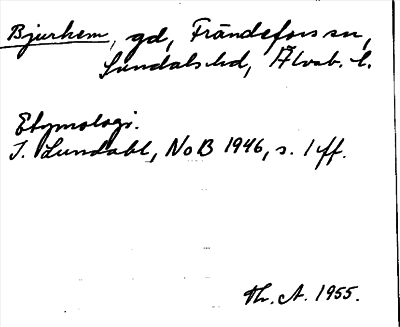 Bjurhem, gd, Frändefors sn,
Sundals hd, Älvsb. l.
Etymologi.
I. Lundahl, NoB 1946, s. 1 ff.
Th. A. 1955.